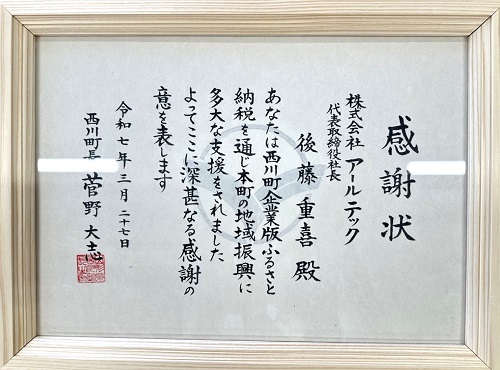 感謝状
株式会社 アールテック
代表取締役社長
後藤重喜殿
あなたは西川町企業版ふるさと
納税を通じ本町の地域振興に
多大な支援をされました
よってここに深甚なる感謝の
意を表します
令和七年三月二十七日
西川町長 菅野大志